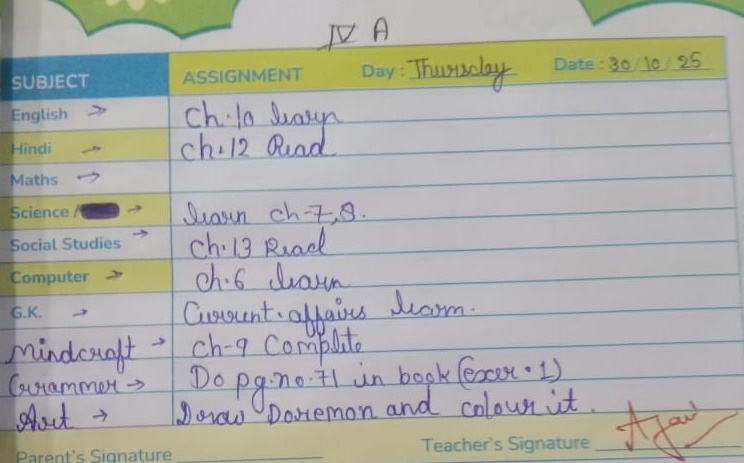 IV A
SUBJECT ASSIGNMENT Day : Thursday Date : 30/10/25
English → Ch.10 learn
Hindi → Ch.12 Read
Maths →
Science / → learn ch-7,8.
Social Studies → Ch.13 Read
Computer → Ch.6 learn
G.K. → Current affairs learn.
Mindcraft → Ch-9 Complete
Grammer → Do pg.no.71 in book (excer.1)
Art → Draw Doremon and colour it.
Parent's Signature Teacher's Signature